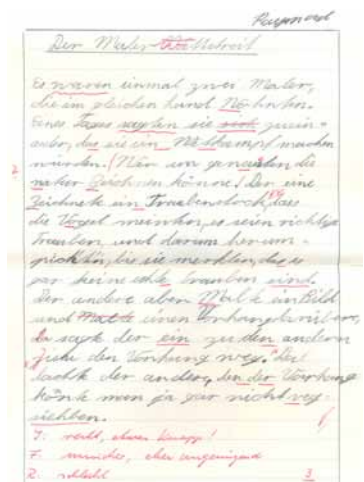 Raymond
Der Maler Wettstreit
Es waren einmal zwei Maler,
die im gleichen Land Wohnten.
Eines Tages sagten sie sich zuein-
ander, das sie ein Wettkampf machen
würden. Wer am genausten die
natur Zeichnen könne! Der eine
Zeichnete ein Traubenstock, dass
die Vögel meinten, es seien richtige
Trauben, und darum herum-
pickten, bis sie merckten, das es
gar keine echte trauben sind.
Der andere aber Malte ein Bild
und Malte einen Vorhang darüber,
da sagte der ein zu den andern
ziehe den Vorhang weg. Da
lachte der andere, den der Vorhang
könne man ja gar nicht weg-
ziehben.
J: recht, etwas knapp!
F: unsicher, eher ungenügend
R: schlecht 3